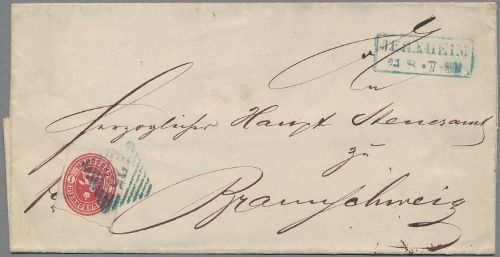 JERXHEIM
21 8 * 7-8N
An
Herzogliches Haupt Steueramt
zu
Braunschweig